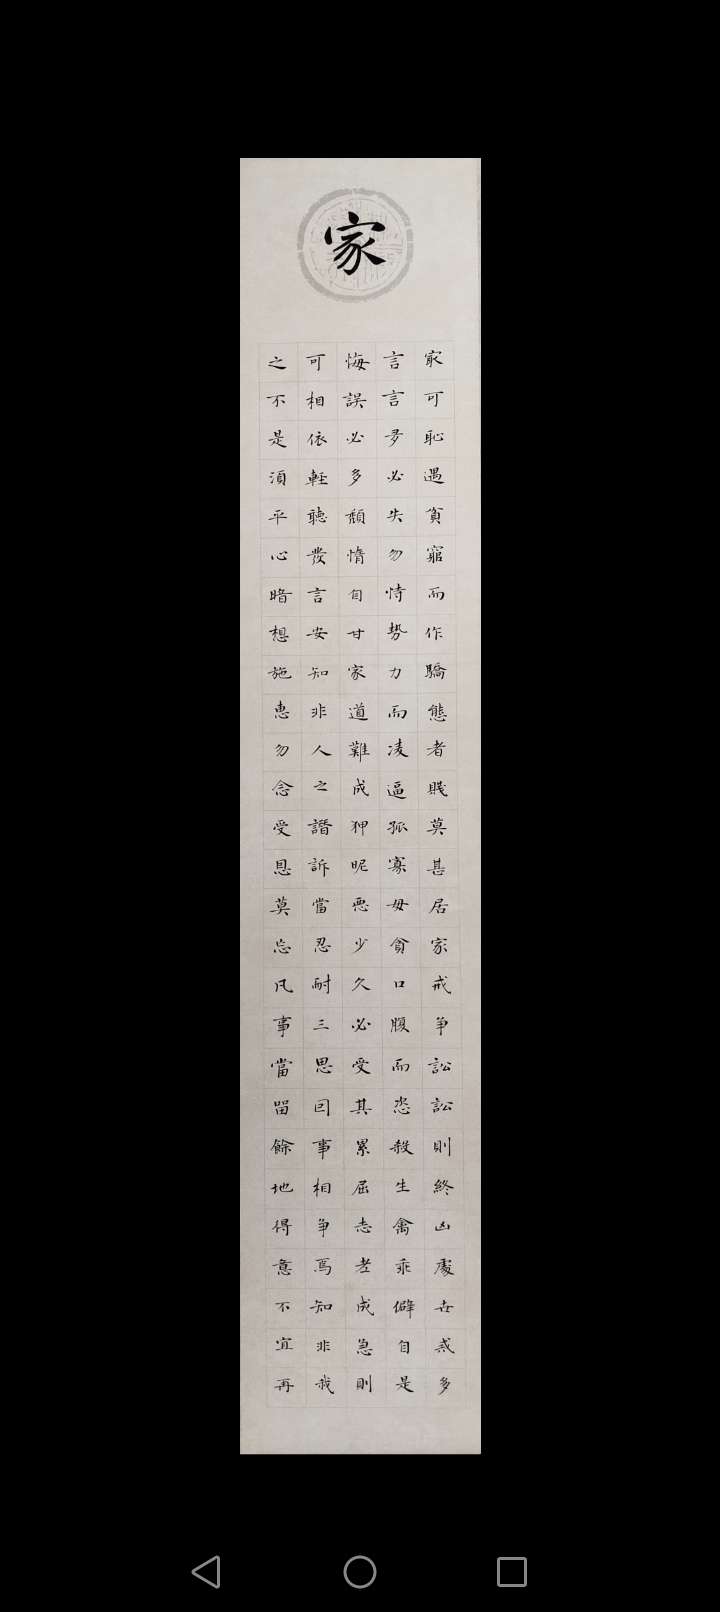 家
最可恥遇貧窮而作驕態者賤莫甚居家戒爭訟訟則終凶處世戒多
言言多必失勿恃勢力而凌逼孤寡毋貪口腹而恣殺生禽乖僻自是
悔誤必多頹惰自甘家道難成狎昵惡少久必受其累屈志老成急則
可相依輕聽發言安知非人之譖訴當忍耐三思因事相爭焉知非我
之不是須平心暗想施惠勿念受恩莫忘凡事當留餘地得意不宜再